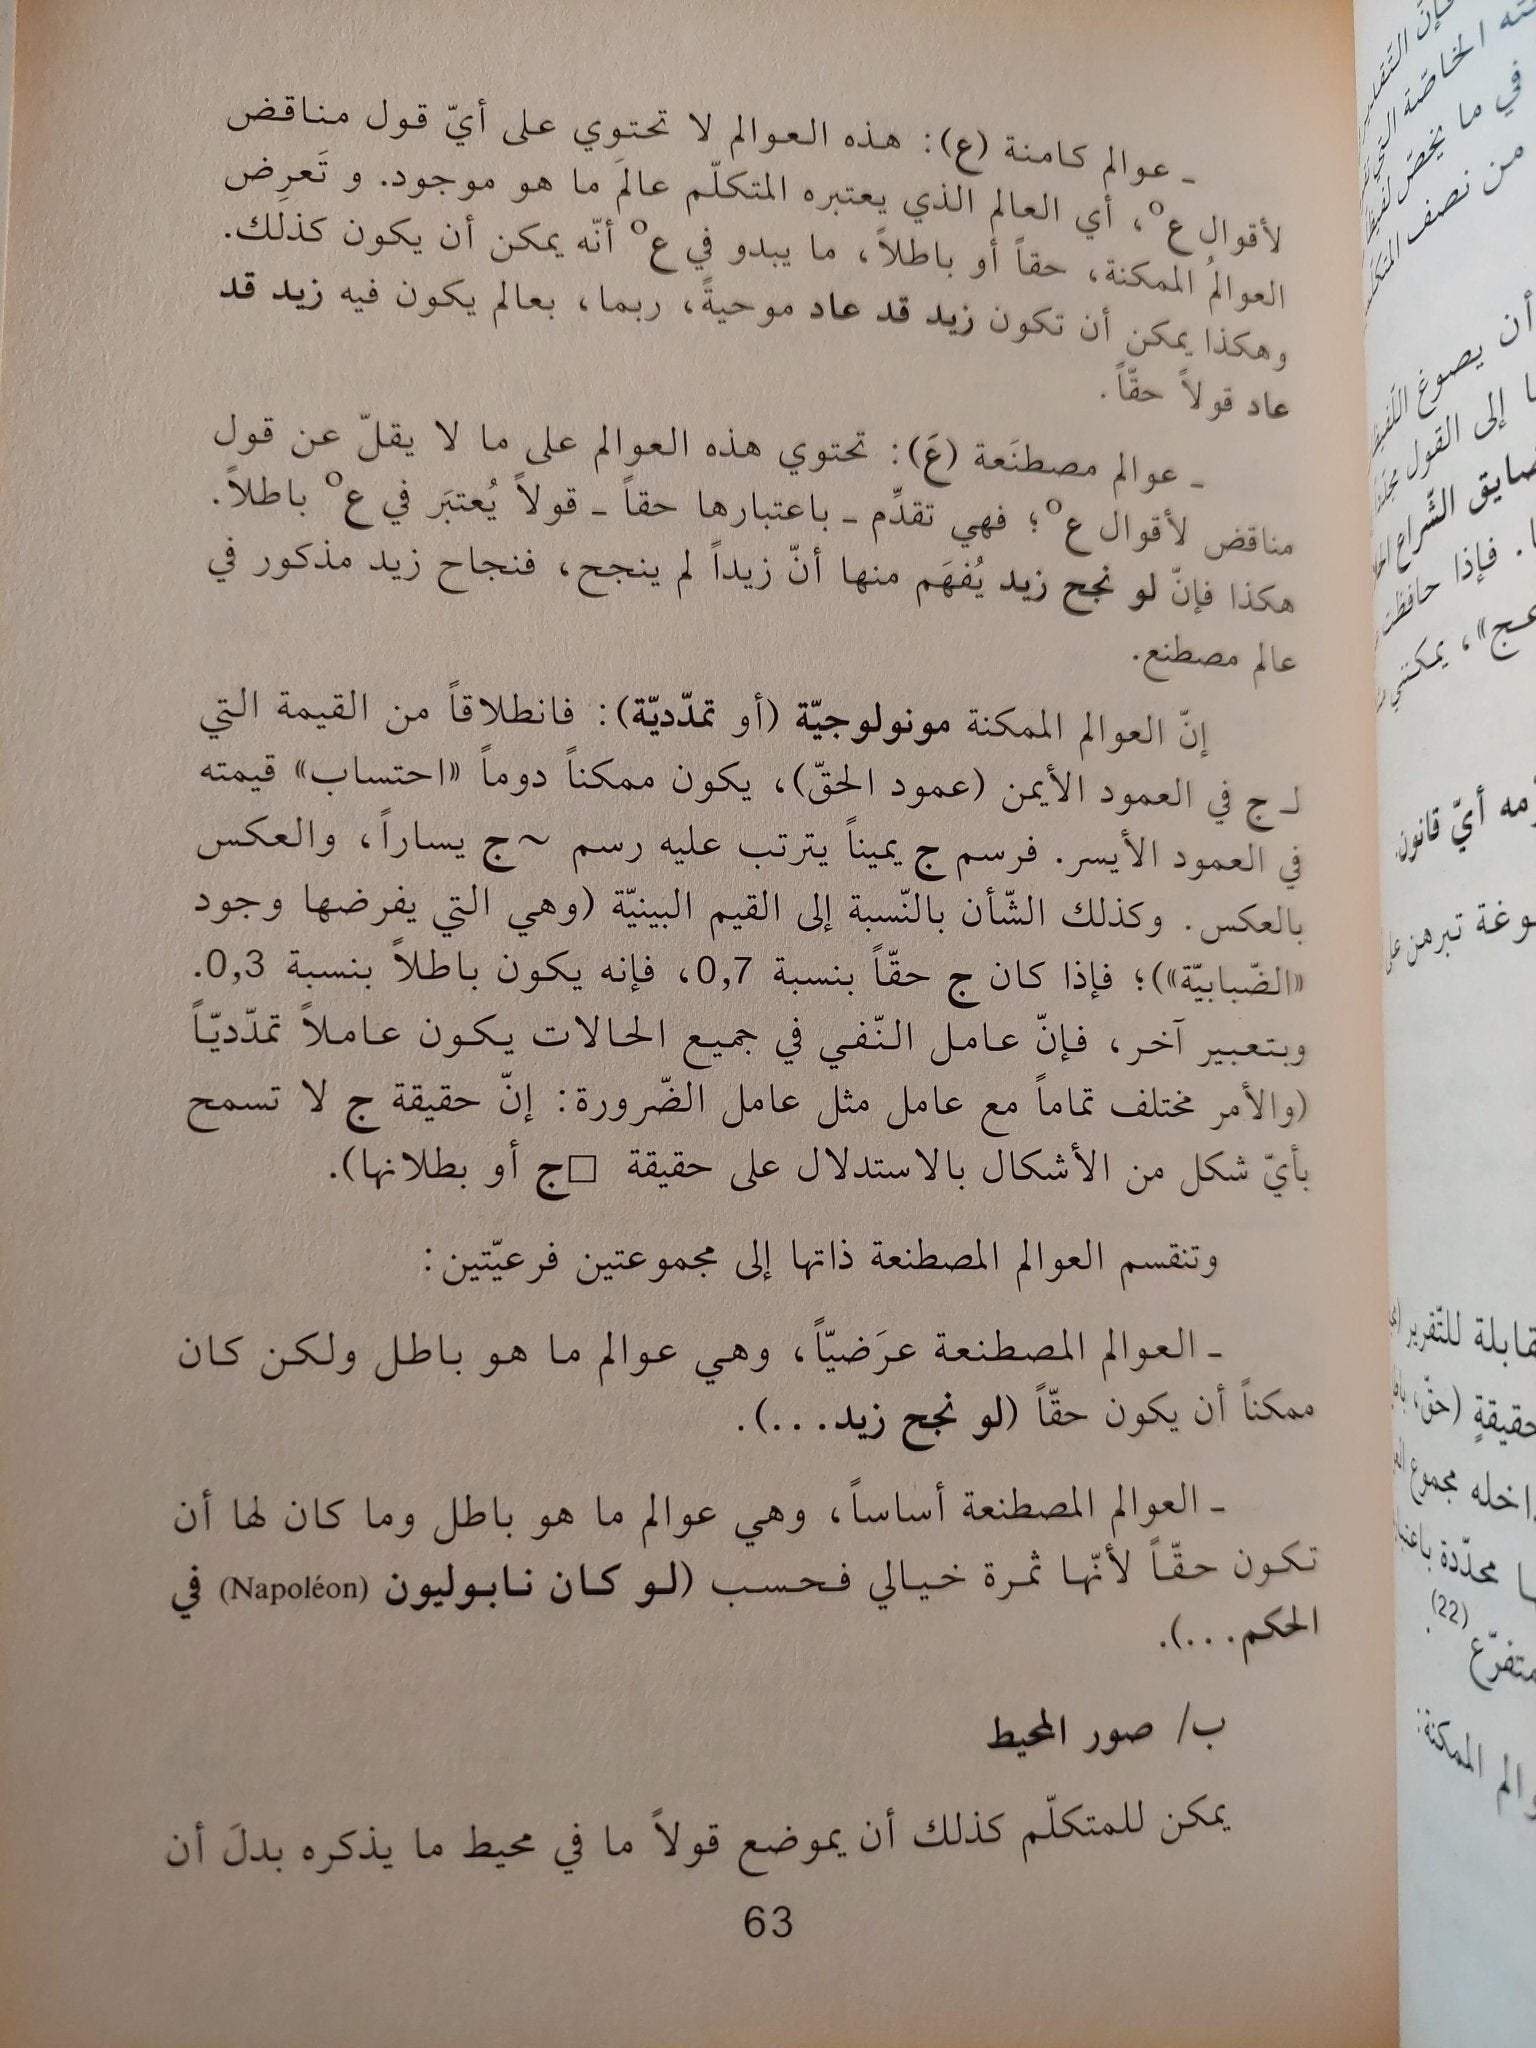 ـ عوالم كامنة (ع): هذه العوالم لا تحتوي على أيّ قول مناقض
لأقوال ع⁰، أي العالم الذي يعتبره المتكلّم عالَمَ ما هو موجود. و تَعرِض
العوالمُ الممكنة، حقاً أو باطلاً، ما يبدو في ع⁰ أنّه يمكن أن يكون كذلك.
وهكذا يمكن أن تكون زيد قد عاد موحيةً، ربما، بعالم يكون فيه زيد قد
عاد قولاً حقّاً.
ـ عوالم مصطنَعة (عَ): تحتوي هذه العوالم على ما لا يقلّ عن قول
مناقض لأقوال ع⁰؛ فهي تقدِّم ـ باعتبارها حقاً ـ قولاً يُعتبَر في ع⁰ باطلاً.
هكذا فإنّ لو نجح زيد يُفهَم منها أنّ زيداً لم ينجح، فنجاح زيد مذكور في
عالم مصطنع.
إنّ العوالم الممكنة مونولوجيّة (أو تمدّديّة): فانطلاقاً من القيمة التي
لـ ج في العمود الأيمن (عمود الحقّ)، يكون ممكناً دوماً «احتساب» قيمته
في العمود الأيسر. فرسم ج يميناً يترتب عليه رسم ~ج يساراً، والعكس
بالعكس. وكذلك الشّأن بالنّسبة إلى القيم البينيّة (وهي التي يفرضها وجود
«الضّبابيّة»)؛ فإذا كان ج حقّاً بنسبة 0,7، فإنه يكون باطلاً بنسبة 0,3.
وبتعبير آخر، فإنّ عامل النّفي في جميع الحالات يكون عاملاً تمدّديّاً
(والأمر مختلف تماماً مع عامل مثل عامل الضّرورة: إنّ حقيقة ج لا تسمح
بأيّ شكل من الأشكال بالاستدلال على حقيقة □ج أو بطلانها).
وتنقسم العوالم المصطنعة ذاتها إلى مجموعتين فرعيّتين:
ـ العوالم المصطنعة عرَضيّاً، وهي عوالم ما هو باطل ولكن كان
ممكناً أن يكون حقّاً (لو نجح زيد...).
ـ العوالم المصطنعة أساساً، وهي عوالم ما هو باطل وما كان لها أن
تكون حقّاً لأنّها ثمرة خيالي فحسب (لو كان نابوليون (Napoléon) في
الحكم...).
ب/ صور المحيط
يمكن للمتكلّم كذلك أن يموضع قولاً ما في محيط ما يذكره بدلَ أن
63
في ما يخصّ
من نصف
أن يصوغ
إلى القول
فإذا حافظت
يمكنني
أيّ قانون
تبرهن
(22)